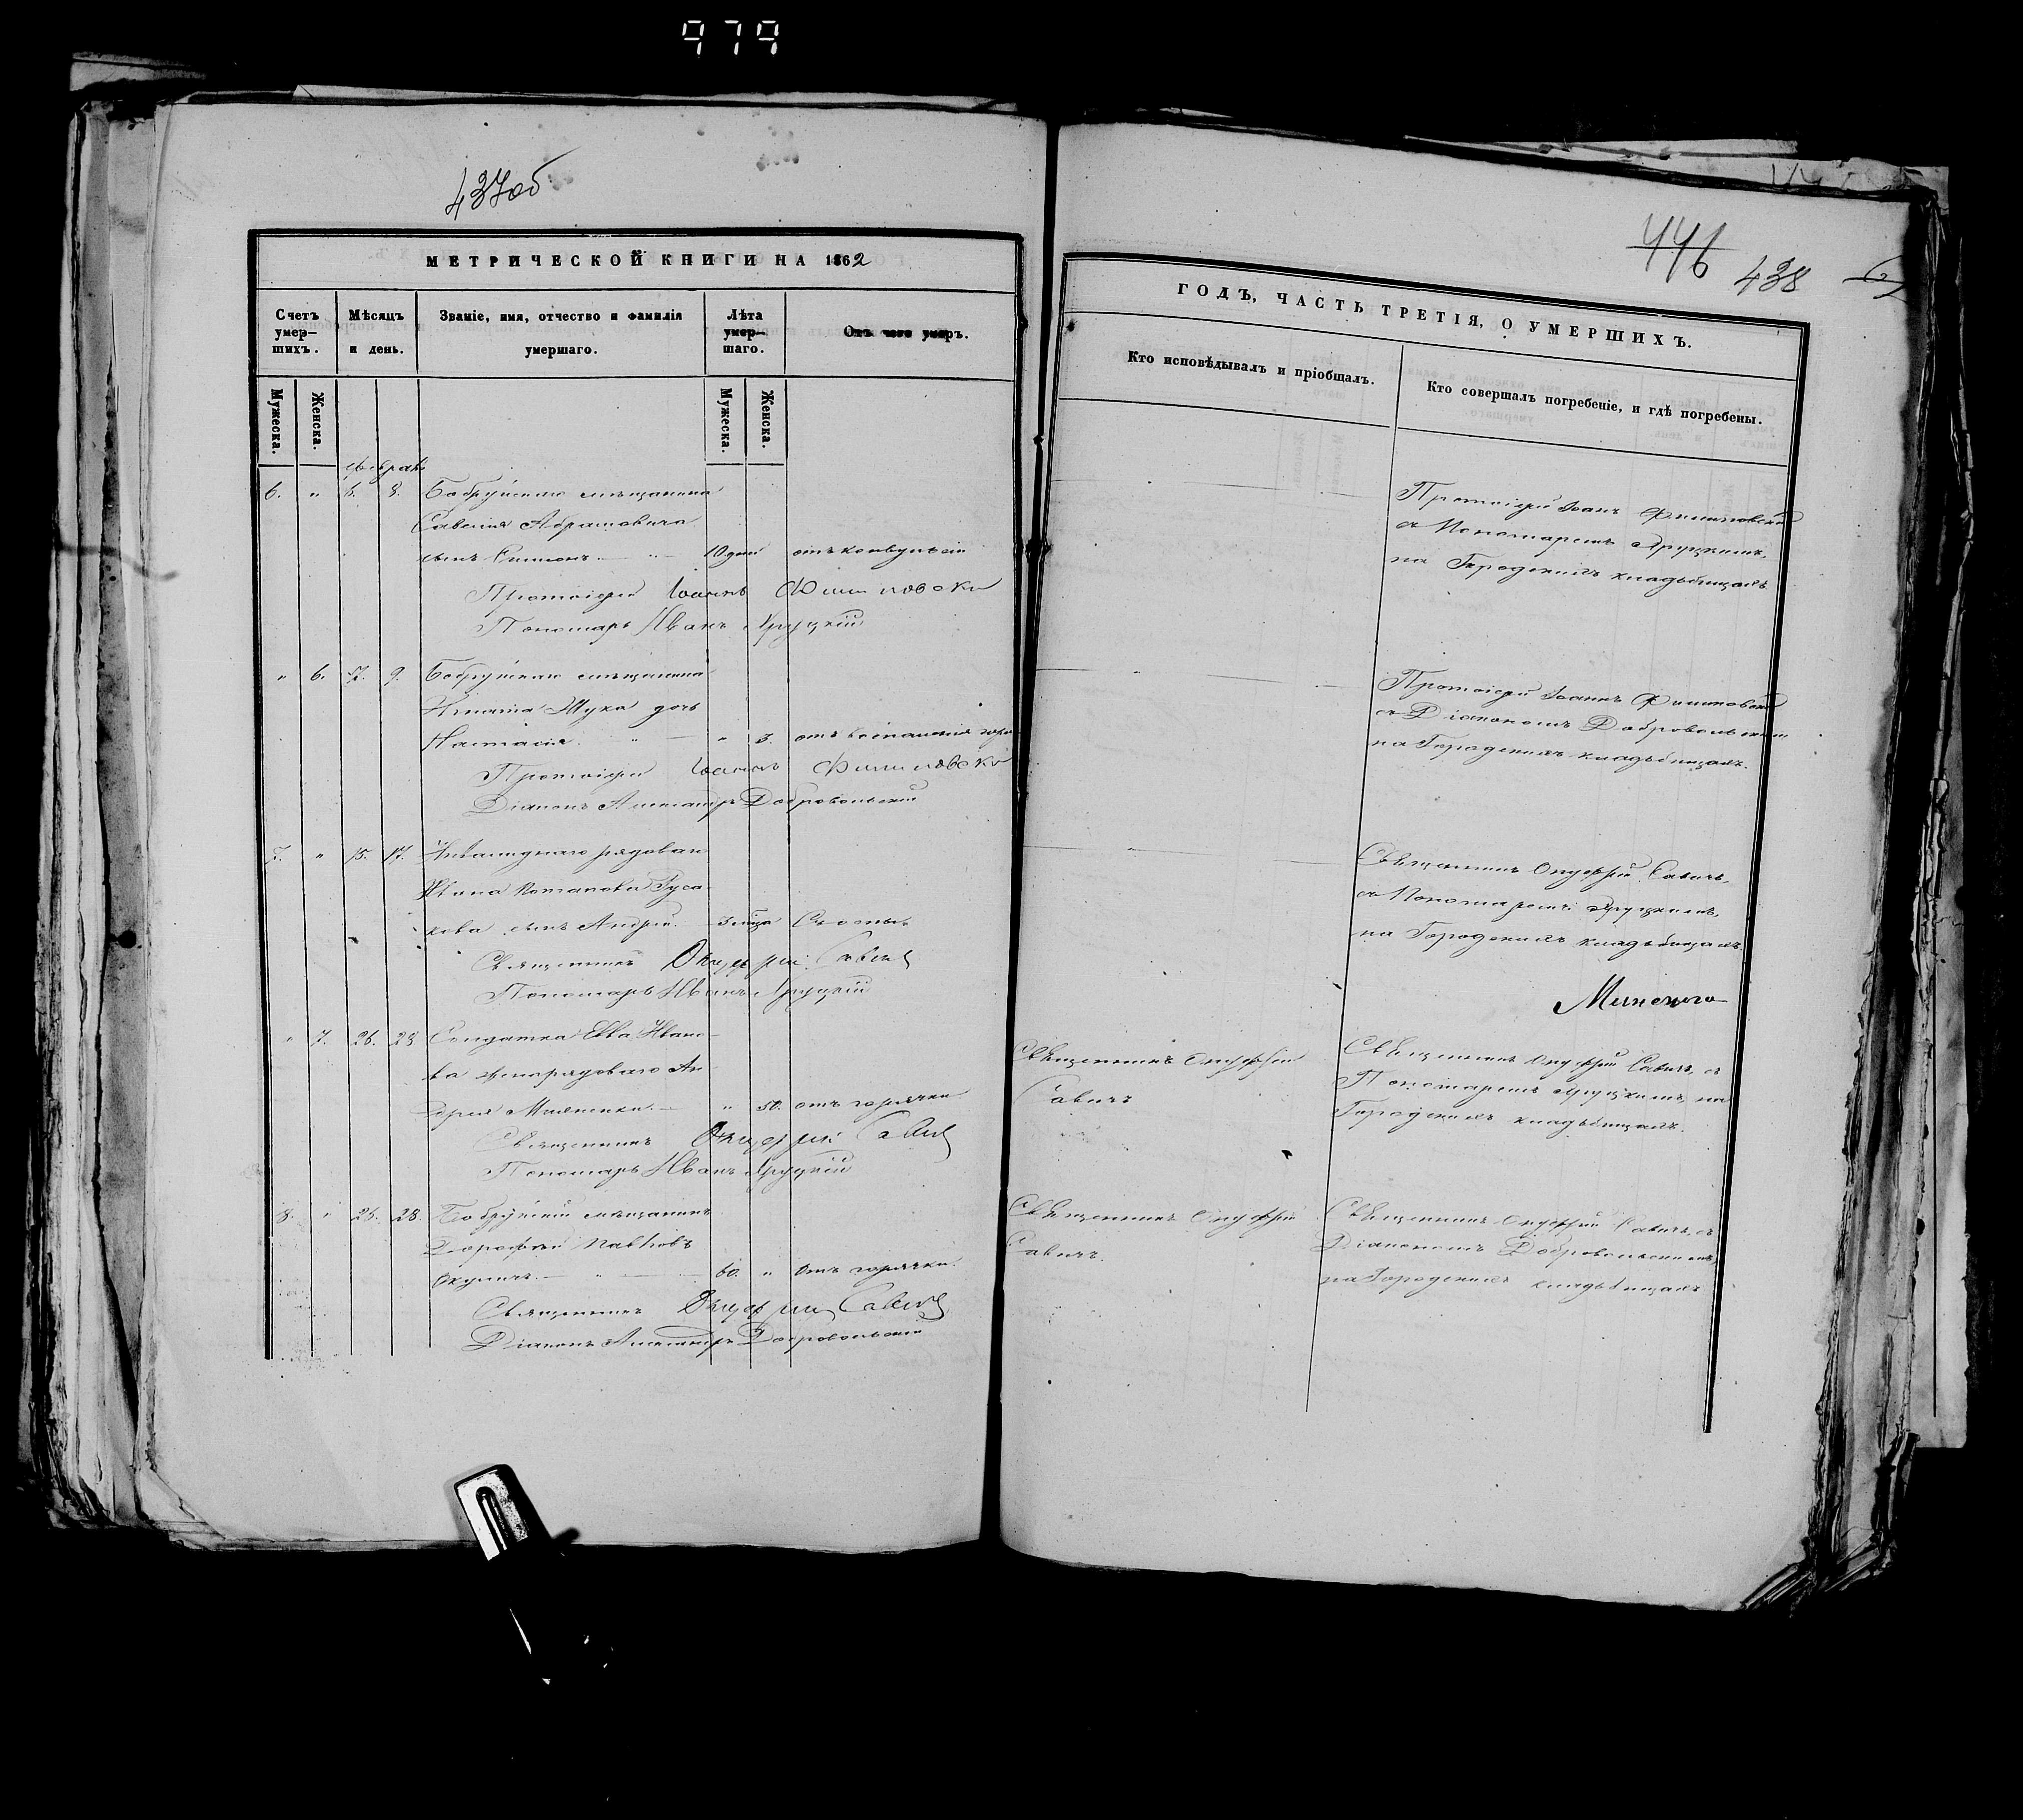 979
437об
МЕТРИЧЕСКОЙ КНИГИ НА 1862
Счетъ умер-шихъ.
Мѣсяцъ и день.
Званіе, имя, отчество и фамилія умершаго.
Лѣта умер-шаго.
Отъ чего умеръ.
Мужеска.
Женска.
Мужеска.
Женска.
6. " 6. 8. Бобруйскаго мѣщанина
Савелія Абрамовича
сынъ Симонъ. 10 дней отъ конвульсіи
Протоіерей Іоаннъ
Пономарь Иванъ Друцкій
" 6. 7. 9. Бобруйскаго мѣщанина
Игната Жука дочь
Настасія. " 3. отъ воспаленія
Протоіерей Іоаннъ
Діаконъ Александръ Добровольскій
7. " 15. 17. Инвалиднаго рядоваго
Ивана Потапова Руса-
кова сынъ Андрей. 3 мѣца
Священникъ Онуфрій Савичъ
Пономарь Иванъ Друцкій
" 7. 26. 28. Солдатка Евва Ивано-
ва жена рядоваго Ан-
дрея " 50. отъ горячки
Священникъ Онуфрій Савичъ
Пономарь Иванъ Друцкій
8. " 26. 28. Бобруйскій мѣщанинъ
Дорофей Павловъ
Окуличъ. 60. " отъ горячки.
Священникъ Онуфрій Савичъ
Діаконъ Александръ Добровольскій
446 438
ГОДЪ, ЧАСТЬ ТРЕТІЯ, О УМЕРШИХЪ.
Кто исповѣдывалъ и пріобщалъ.
Кто совершалъ погребеніе, и гдѣ погребены.
Протоіерей Іоаннъ
съ Пономаремъ Друцкимъ,
на Городскихъ кладбищахъ
Протоіерей Іоаннъ
съ Діакономъ Добровольскимъ
на Городскихъ кладбищахъ.
Священникъ Онуфрій Савичъ,
съ Пономаремъ Друцкимъ,
на Городскихъ кладбищахъ
Минскаго
Священникъ Онуфрій
Савичъ
Священникъ Онуфрій Савичъ, съ
Пономаремъ Друцкимъ, на
Городскихъ кладбищахъ.
Священникъ Онуфрій
Савичъ.
Священникъ Онуфрій Савичъ, съ
Діакономъ Добровольскимъ,
на Городскихъ кладбищахъ